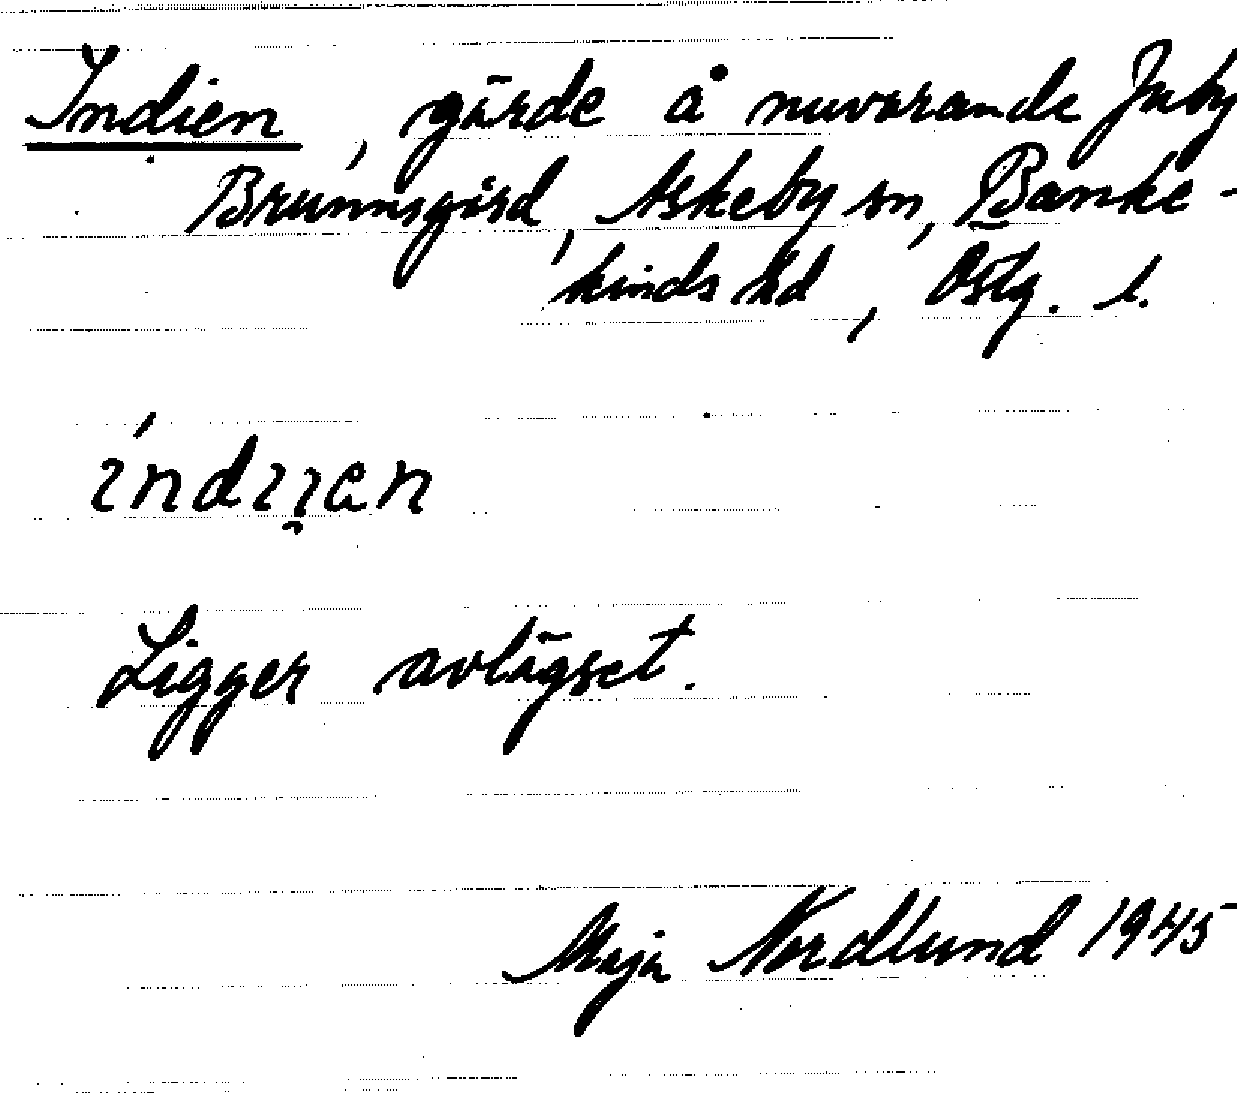 Indien, gärde å nuvarande Juby
Brunnsgård, Askeby sn, Banke-
kinds hd, Östg. l.
índi̯ien
Ligger avlägset.
Maja Nordlund 1945